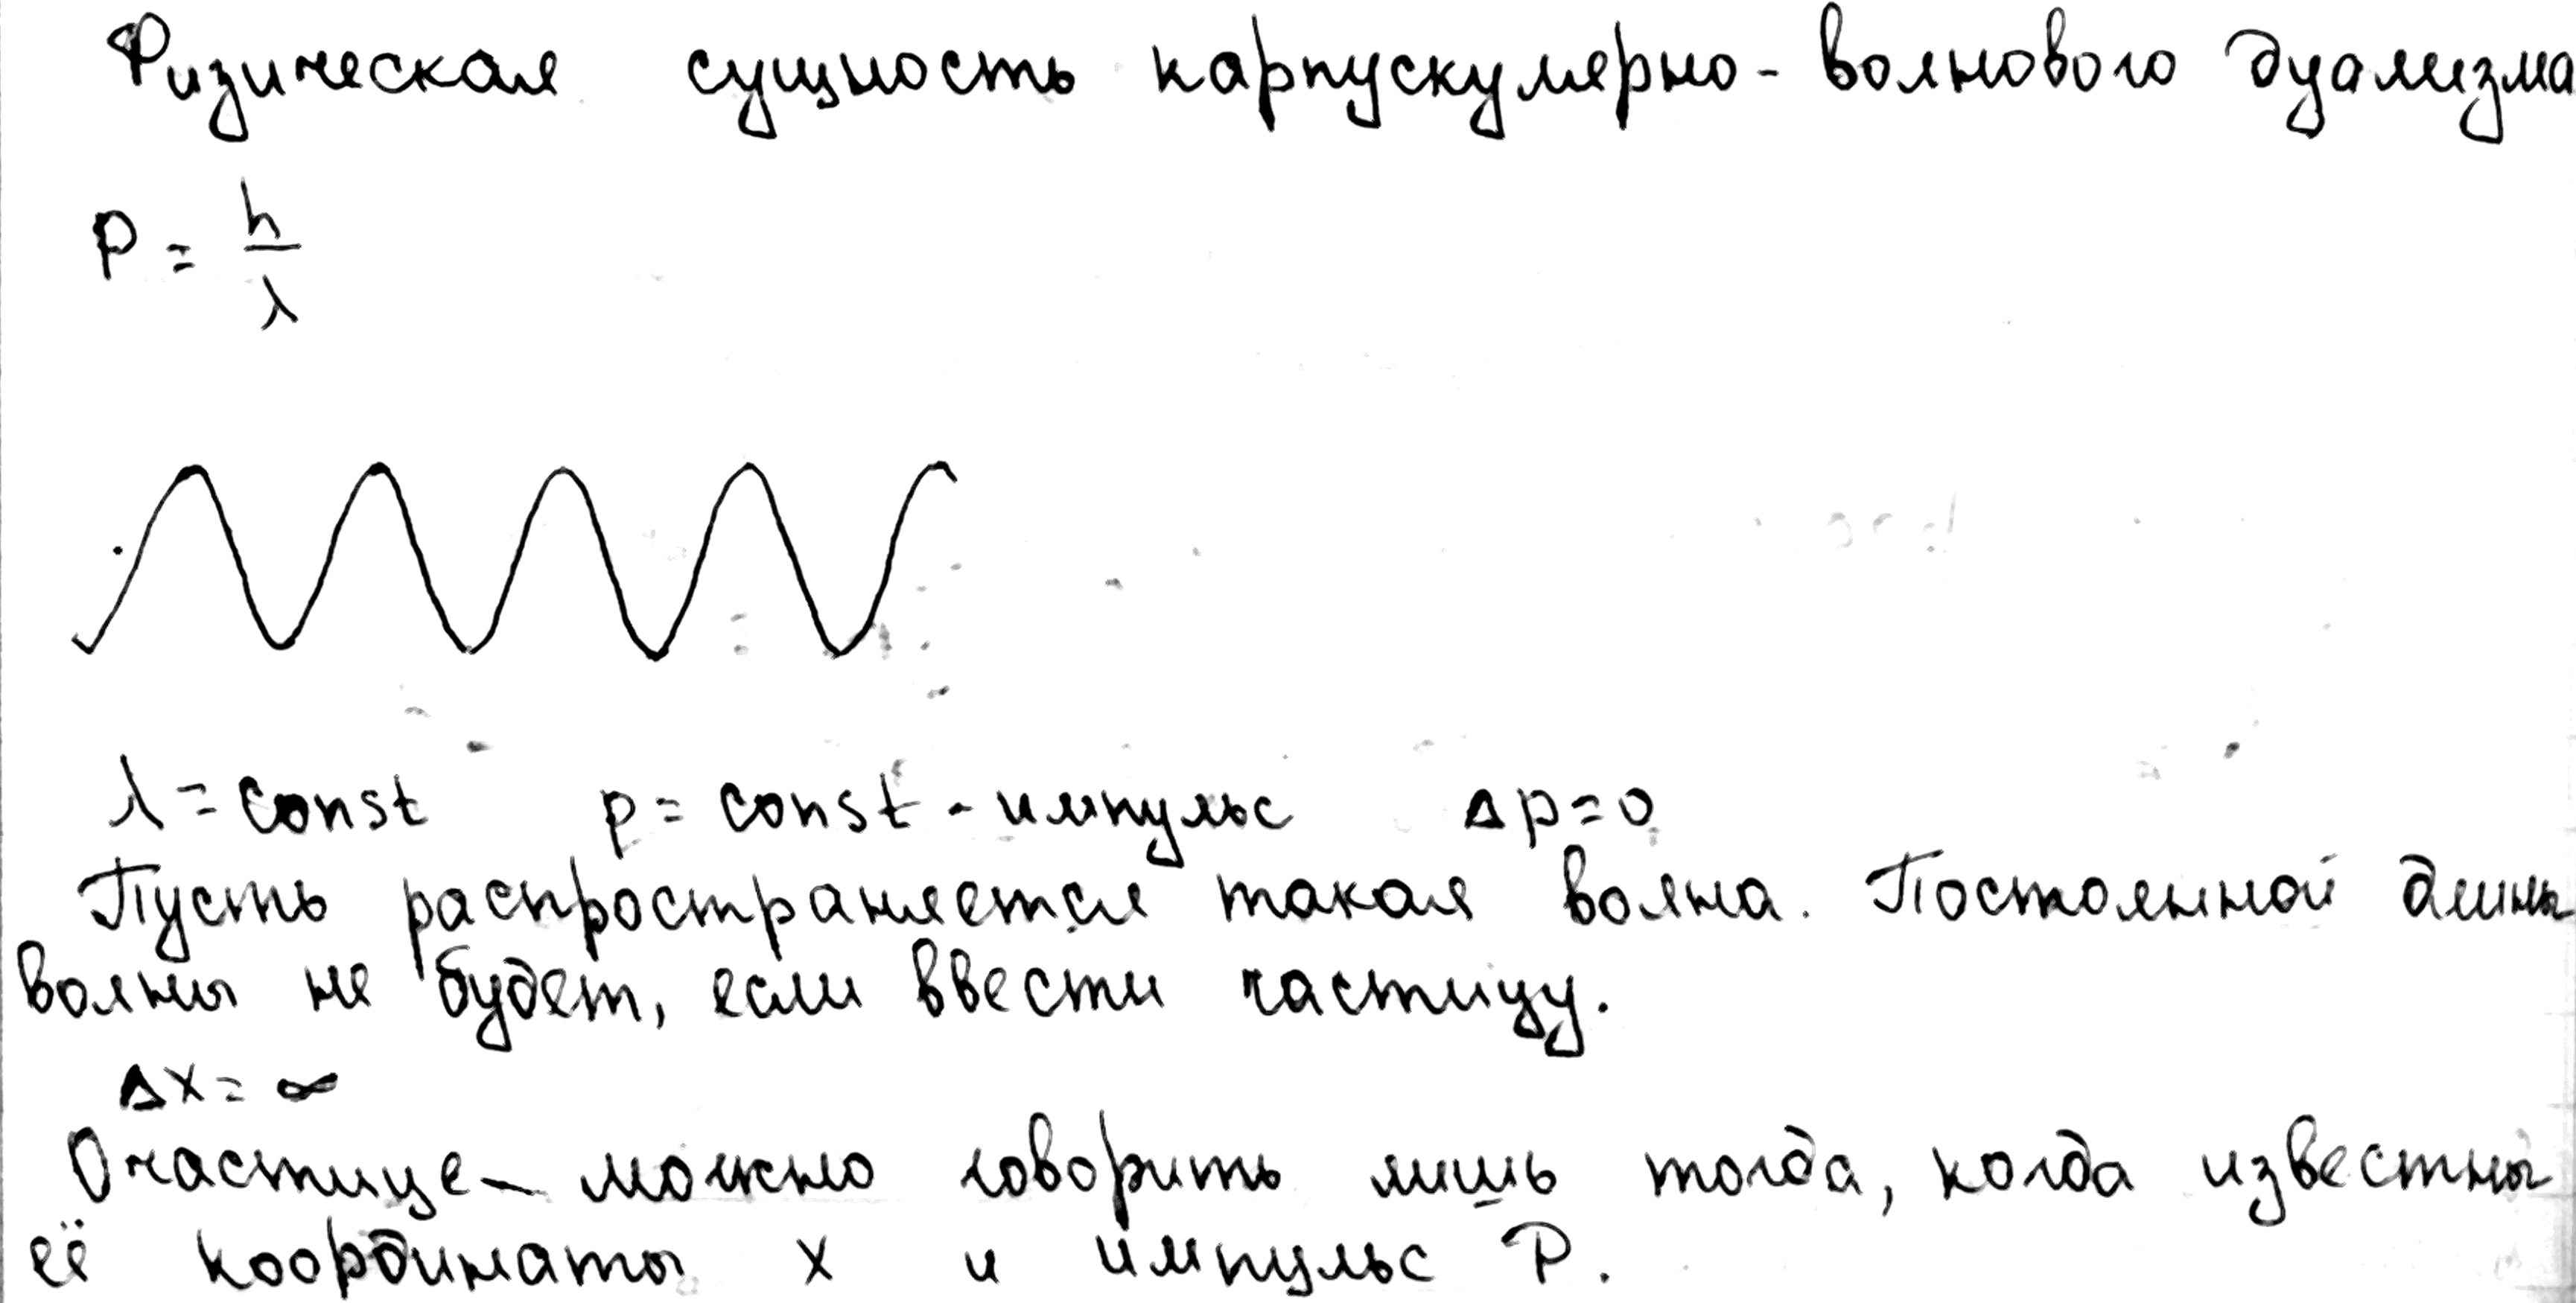 Физическая сущность карпускулярно-волнового дуализма
P = h/λ
λ = const p = const - импульс Δp = 0
Пусть распространяется такая волна. Постоянной длины
волны не будет, если ввести частицу.
Δx = ∞
О частице – можно говорить лишь тогда, когда известны
её координаты x и импульс P.